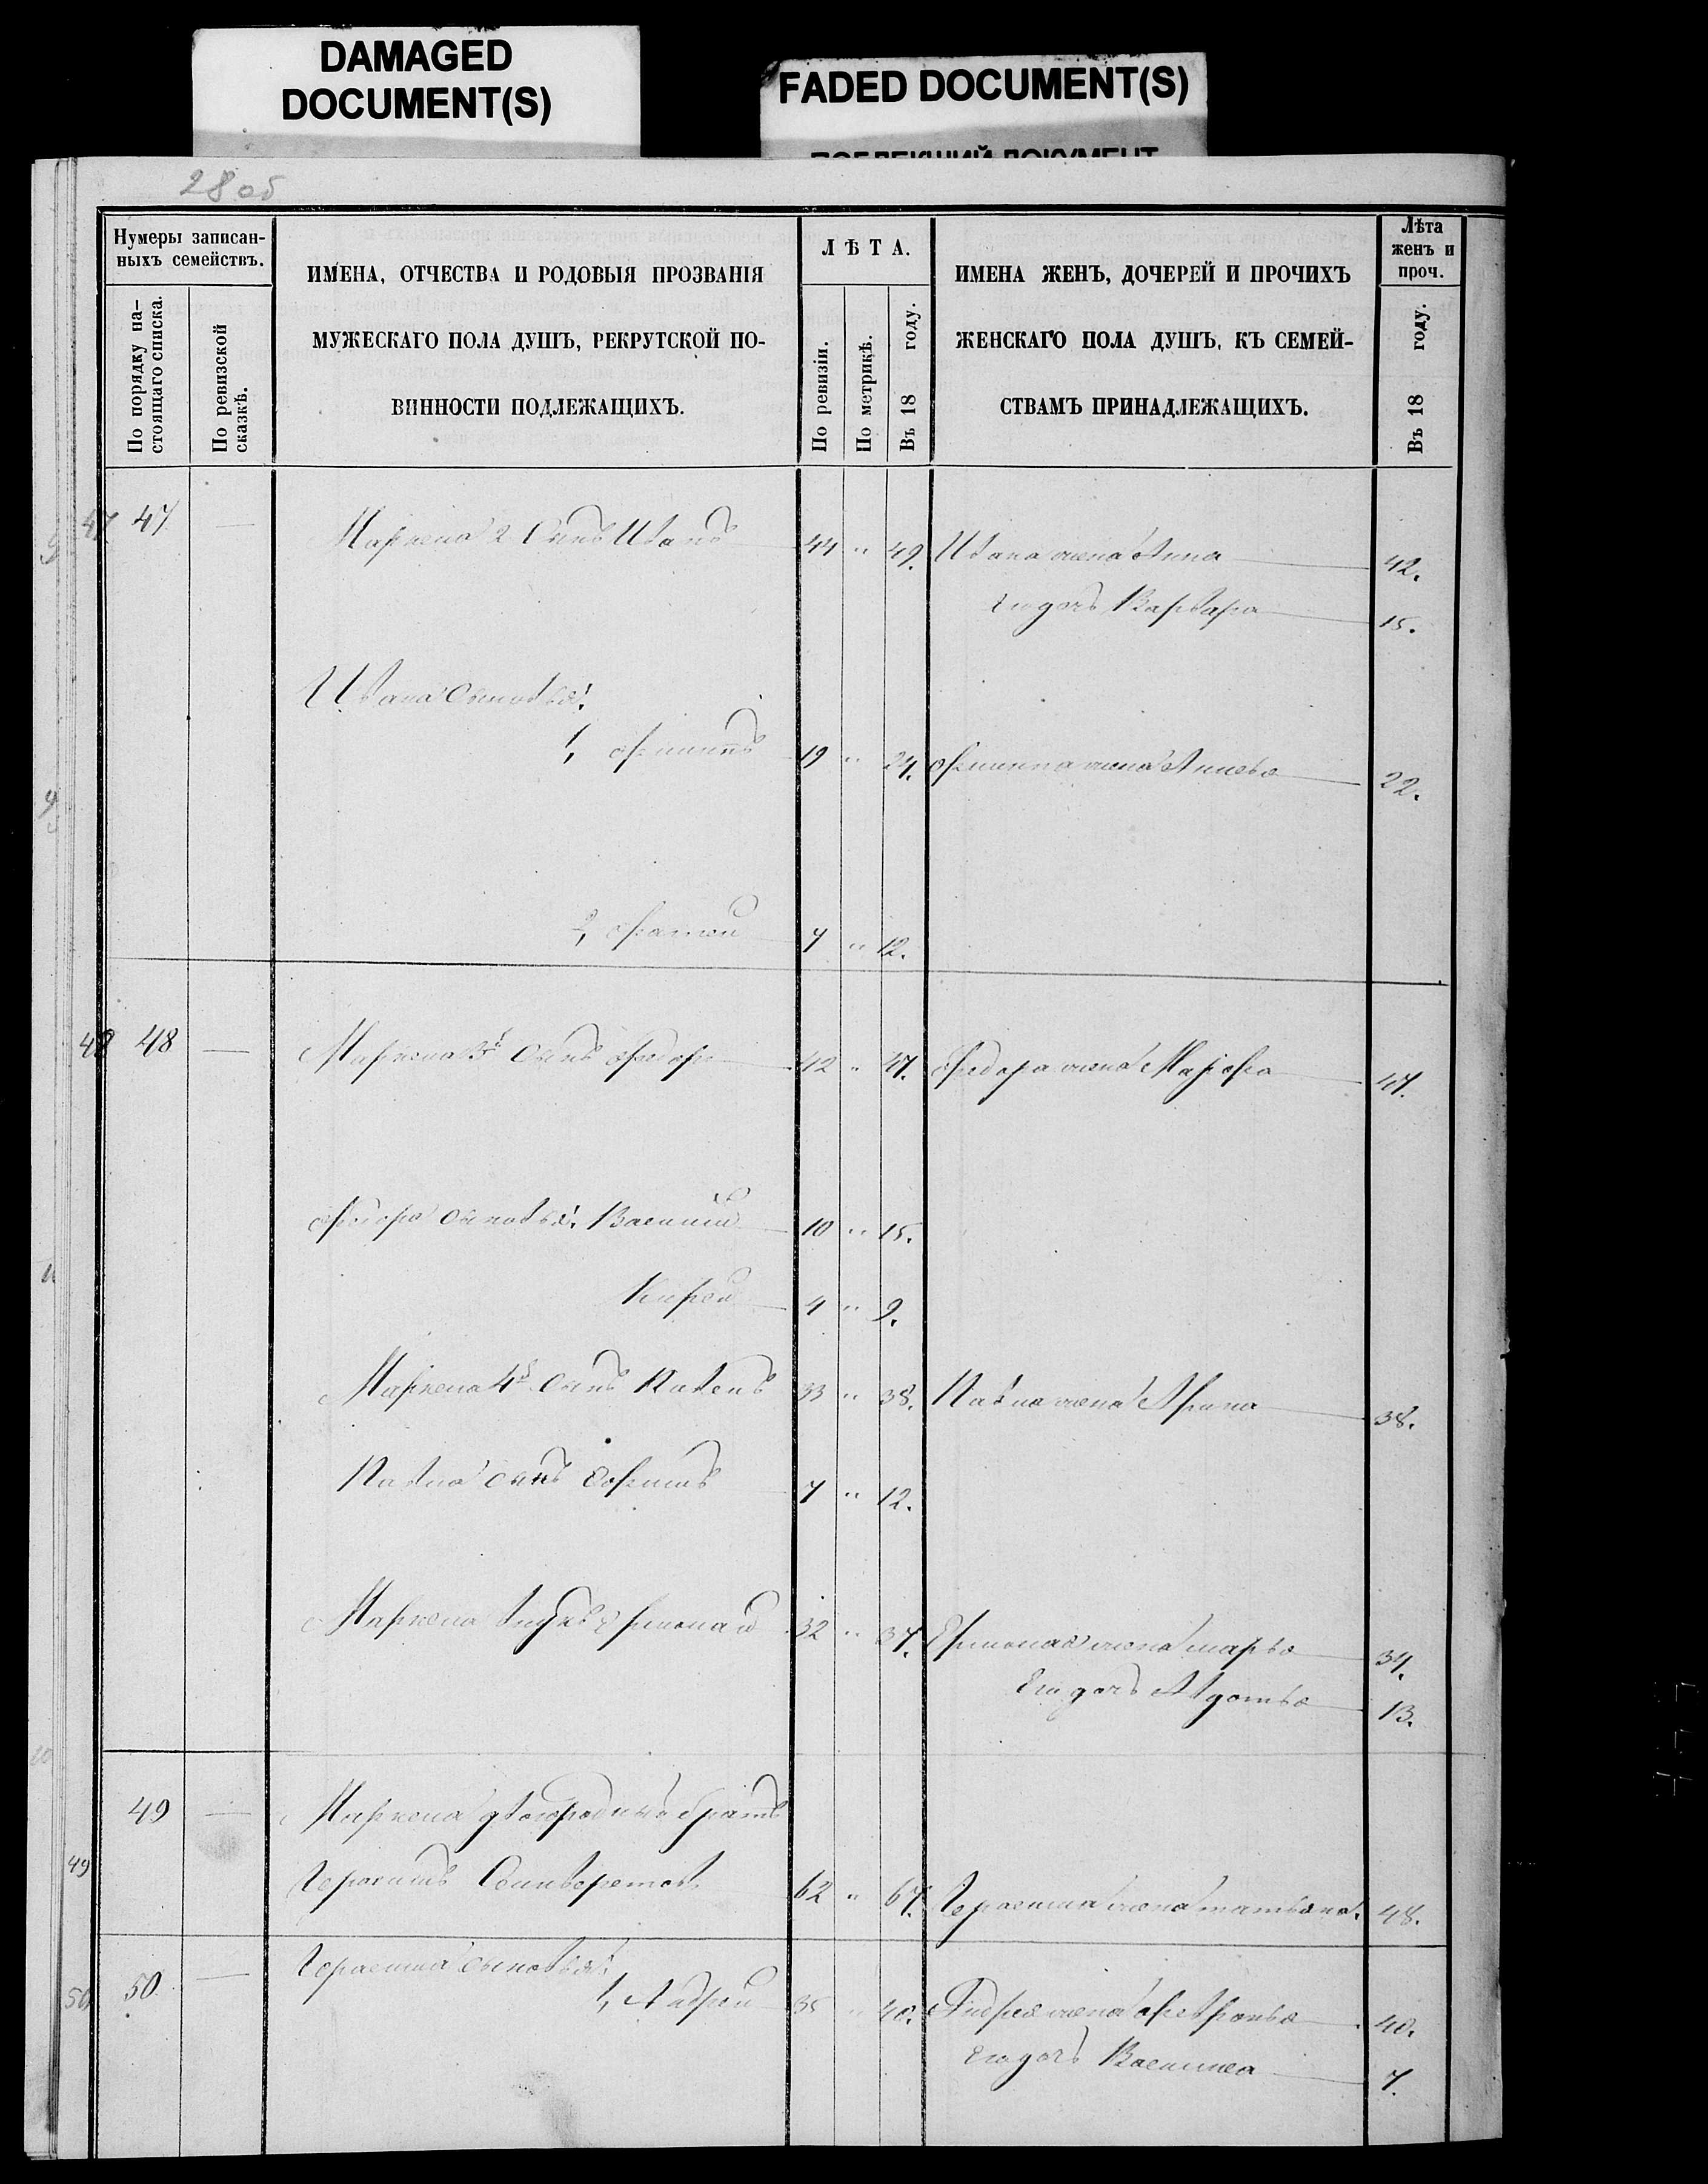 DAMAGED
DOCUMENT(S)
FADED DOCUMENT(S)
28 об
Нумеры записан-
ныхъ семействъ.
По порядку на-
стоящаго списка.
По ревизской
сказкѣ.
ИМЕНА, ОТЧЕСТВА И РОДОВЫЯ ПРОЗВАНІЯ
МУЖЕСКАГО ПОЛА ДУШЪ, РЕКРУТСКОЙ ПО-
ВИННОСТИ ПОДЛЕЖАЩИХЪ.
ЛѢТА.
По ревизіи.
По метрикѣ.
Въ 18 году.
ИМЕНА ЖЕНЪ, ДОЧЕРЕЙ И ПРОЧИХЪ
ЖЕНСКАГО ПОЛА ДУШЪ, КЪ СЕМЕЙ-
СТВАМЪ ПРИНАДЛЕЖАЩИХЪ.
Лѣта
женъ и
проч.
Въ 18 году.
47 47 — Маркела 2 Сынъ Иванъ 44 " 49. Ивана жена Анна 42.
Его дочь Варвара 15.
Ивана сыновья:
1, Филиппъ 19 " 24. Филиппа жена 22.
2, Фатей 7 " 12.
48 48 — Маркела 3й Сынъ Федоръ 42 " 47. Федора жена Марфа 47.
Федора сыновья: Василий 10 " 15.
Кирей 4 " 9.
Маркела 4й Сынъ Павелъ 33 " 38. Павла жена Арина 38.
Павла сынъ Ефимъ 7 " 12.
Маркела внукъ Ермолай 32 " 37. Ермолая жена марья 34.
Его дочь Авдотья 13.
49 49 — Маркела двоюродный братъ
Герасимъ 62 " 67. Герасима жена татьяна. 48.
50 50 — Герасима сыновья:
1, Андрей 35 " 40. Андрея жена Февронья 40.
Его дочь Василиса 7.